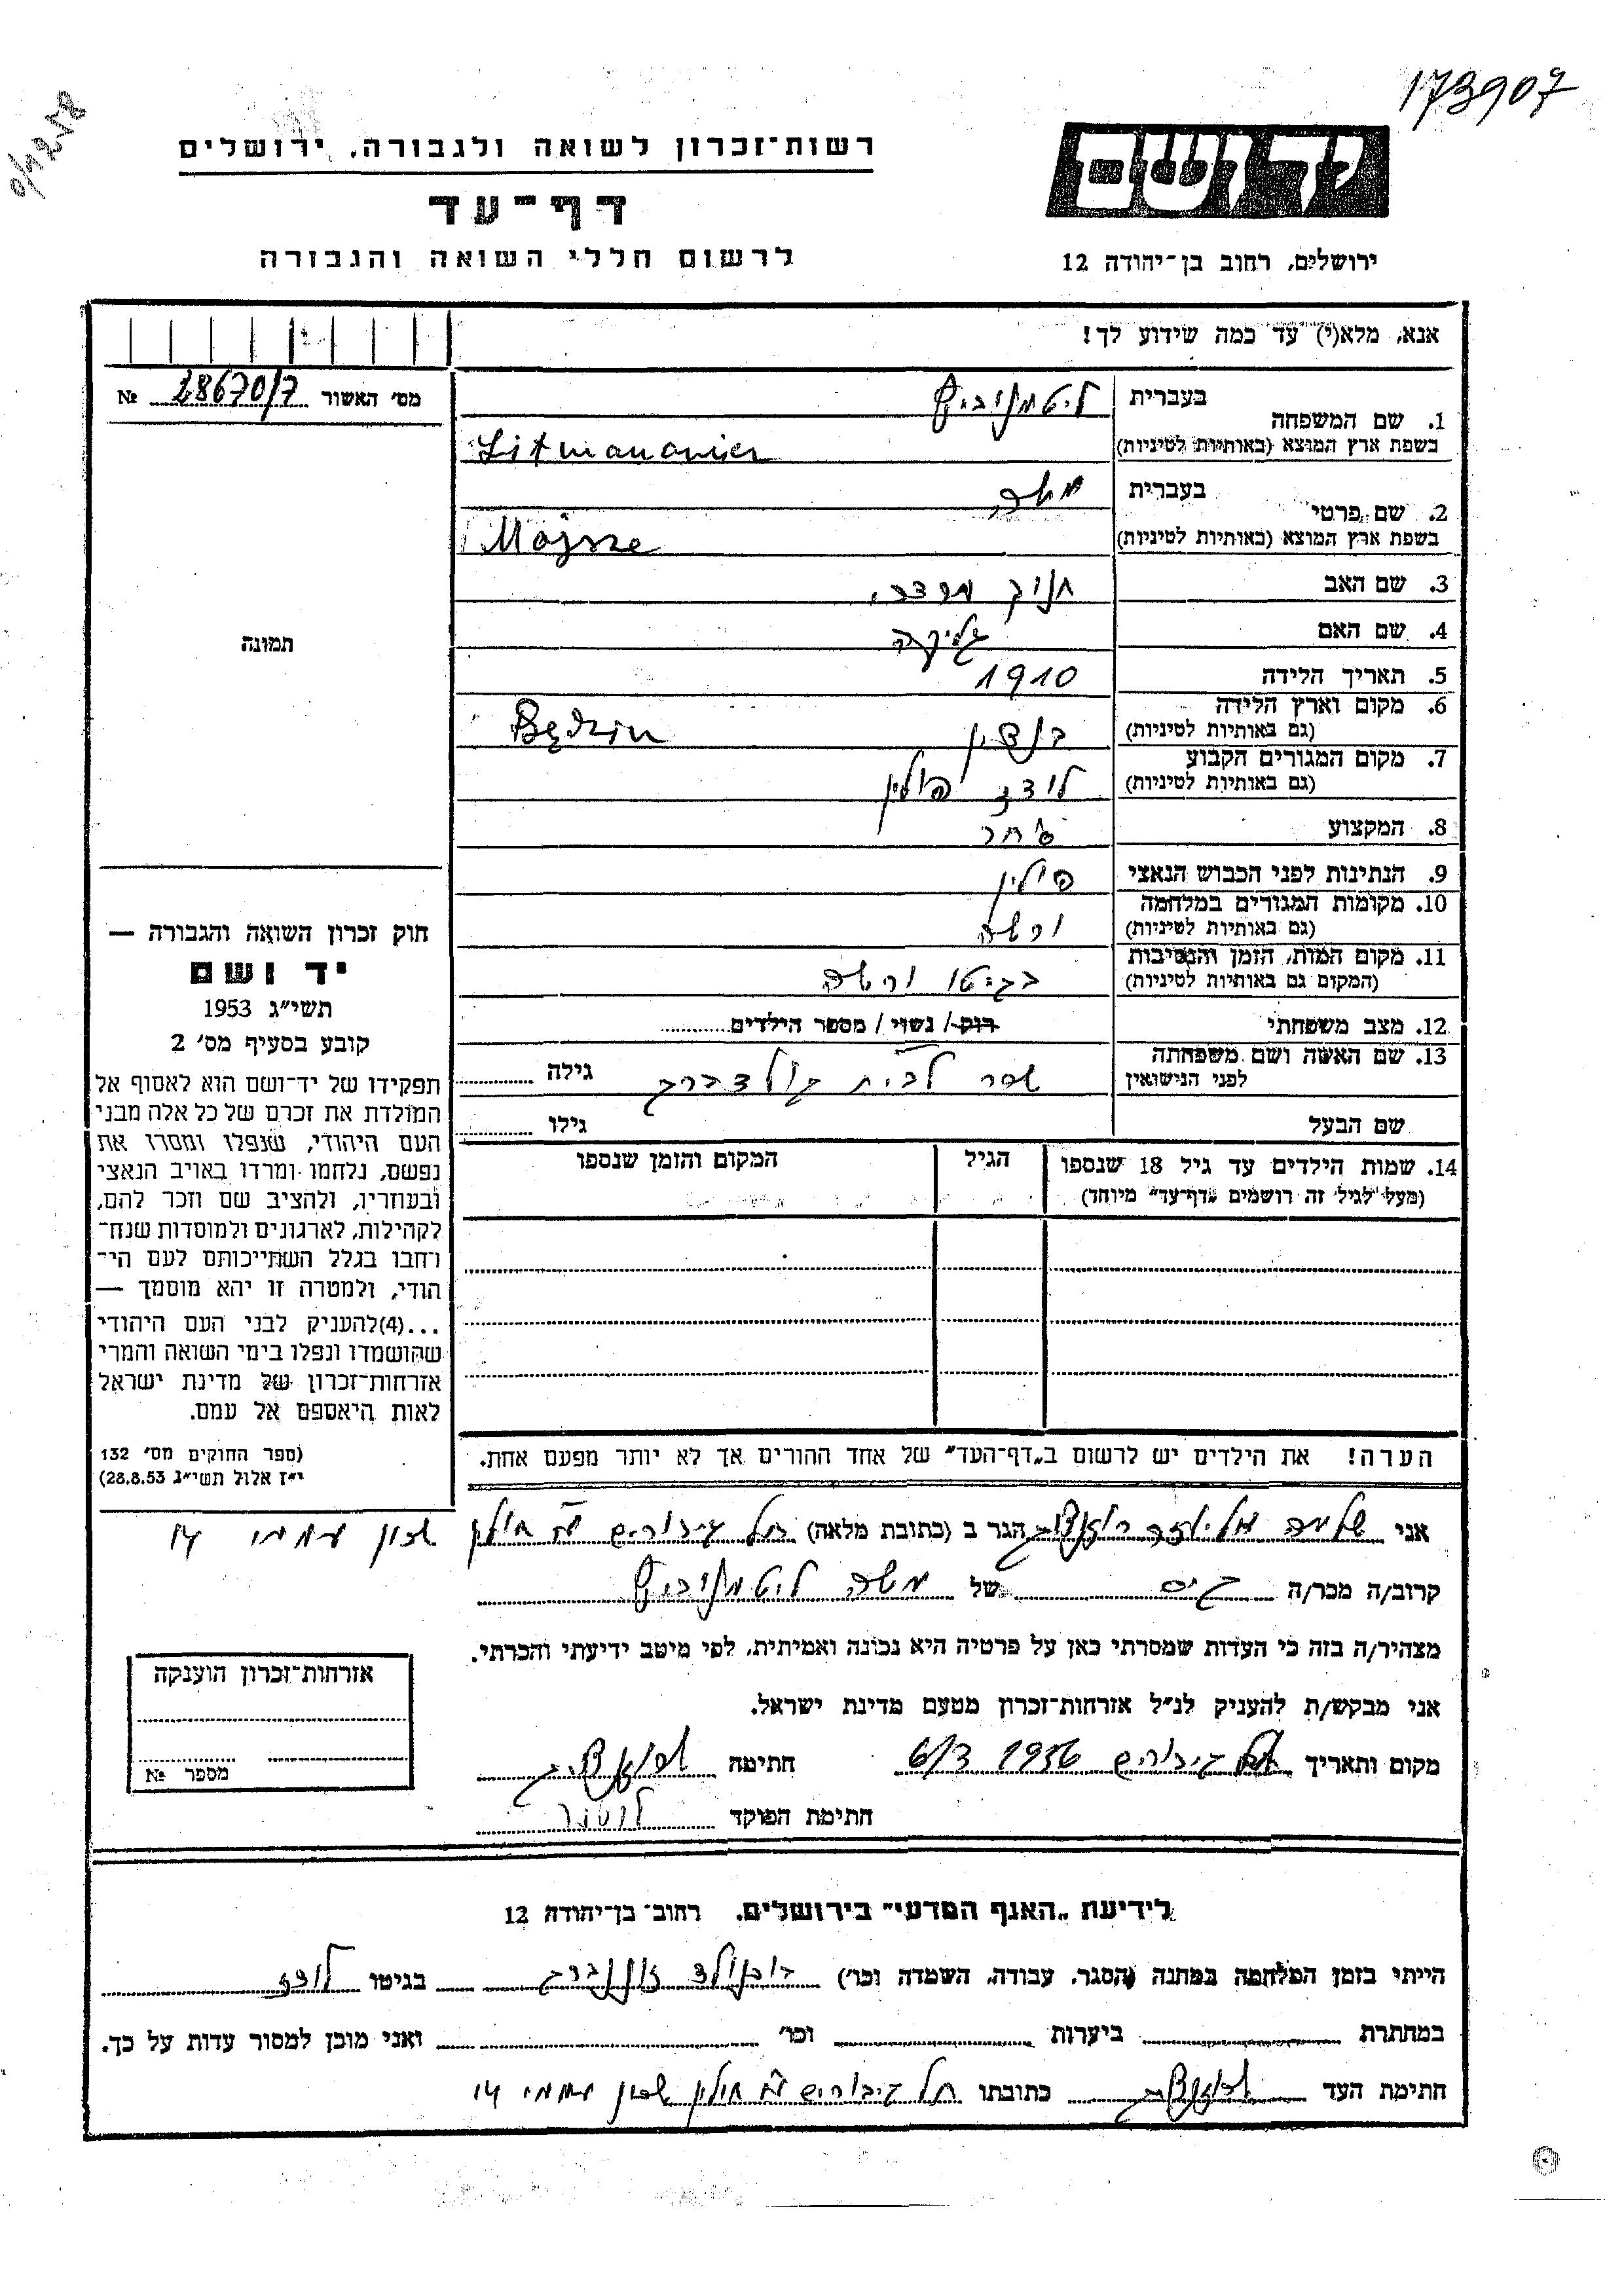 173907
יד ושם
ירושלים, רחוב בן־יהודה 12
רשות־זכרון לשואה ולגבורה, ירושלים
דף־עד
לרשום חללי השואה והגבורה
אנא, מלא(י) עד כמה שידוע לך!
מס׳ האשור 28670/7 №
1. שם המשפחה
בעברית ליטמנוביץ
בשפת ארץ המוצא (באותיות לטיניות)
2. שם פרטי
בעברית משה
בשפת ארץ המוצא (באותיות לטיניות) Mojsze
3. שם האב חנוך מרדכי
4. שם האם
5. תאריך הלידה 1910
6. מקום וארץ הלידה
(גם באותיות לטיניות) בנדין Będzin
7. מקום המגורים הקבוע
(גם באותיות לטיניות) לודז פולין
8. המקצוע סוחר
9. הנתינות לפני הכבוש הנאצי פולין
10. מקומות המגורים במלחמה
(גם באותיות לטיניות) ורשה
11. מקום המות, הזמן והנסיבות
(המקום גם באותיות לטיניות) בגיטו ורשה
12. מצב משפחתי רוק / נשוי / מספר הילדים
13. שם האשה ושם משפחתה
לפני הנישואין אסתר לבית גולדברג גילה
שם הבעל גילו
14. שמות הילדים עד גיל 18 שנספו
(מעל לגיל זה רושמים „דף־עד״ מיוחד)
הגיל
המקום והזמן שנספו
תמונה
חוק זכרון השואה והגבורה —
יד ושם
תשי״ג 1953
קובע בסעיף מס׳ 2
תפקידו של יד־ושם הוא לאסוף אל
המולדת את זכרם של כל אלה מבני
העם היהודי, שנפלו ומסרו את
נפשם, נלחמו ומרדו באויב הנאצי
ובעוזריו, ולהציב שם וזכר להם,
לקהילות, לארגונים ולמוסדות שנח־
רחבו בגלל השתייכותם לעם הי־
הודי, ולמטרה זו יהא מוסמך —
...(4)להעניק לבני העם היהודי
שהושמדו ונפלו בימי השואה והמרי
אזרחות־זכרון של מדינת ישראל
לאות היאספם אל עמם.
(ספר החוקים מס׳ 132
י״ז אלול תשי״ג 28.8.53)
הערה! את הילדים יש לרשום ב„דף־העד״ של אחד ההורים אך לא יותר מפעם אחת.
אני שלמה הגר ב (כתובת מלאה) תל גיבורים חולון שכון עממי 14
קרוב/ה מכר/ה גיס של משה ליטמנוביץ
מצהיר/ה בזה כי העדות שמסרתי כאן על פרטיה היא נכונה ואמיתית, לפי מיטב ידיעתי והכרתי.
אני מבקש/ת להעניק לנ״ל אזרחות־זכרון מטעם מדינת ישראל.
מקום ותאריך תל גיבורים 1956 6/3 חתימה
חתימת הפוקד
אזרחות־זכרון הוענקה
מספר №
לידיעת „האגף המדעי״ בירושלים. רחוב בן־יהודה 12
הייתי בזמן המלחמה במחנה (הסגר, עבודה, השמדה וכו׳) בגיטו לודז
במחתרת ביערות וכו׳ ואני מוכן למסור עדות על כך.
חתימת העד כתובתו תל גיבורים חולון שכון עממי 14